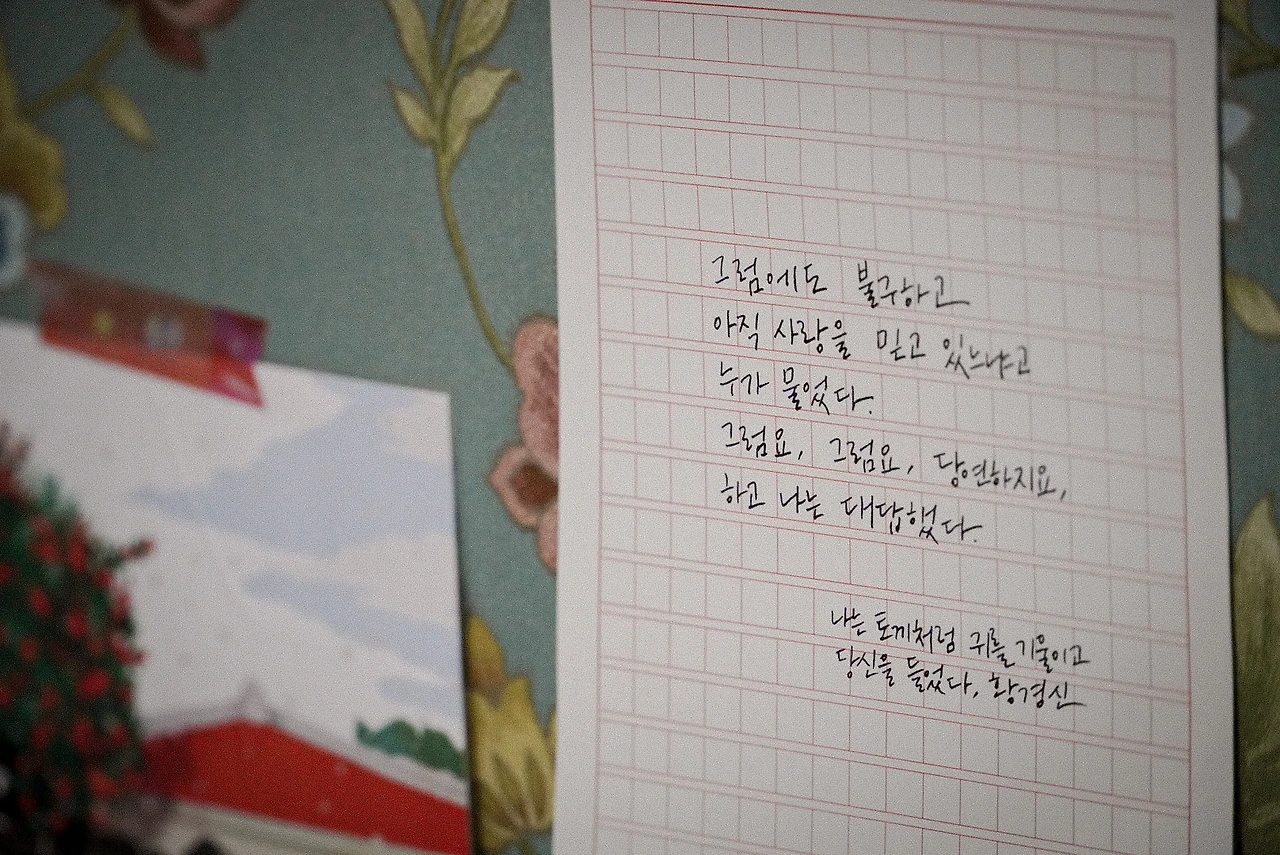 그럼에도 불구하고
아직 사랑을 믿고 있느냐고
누가 물었다.
그럼요, 그럼요, 당연하지요,
하고 나는 대답했다.
나는 토끼처럼 귀를 기울이고
당신을 들었다, 황경신